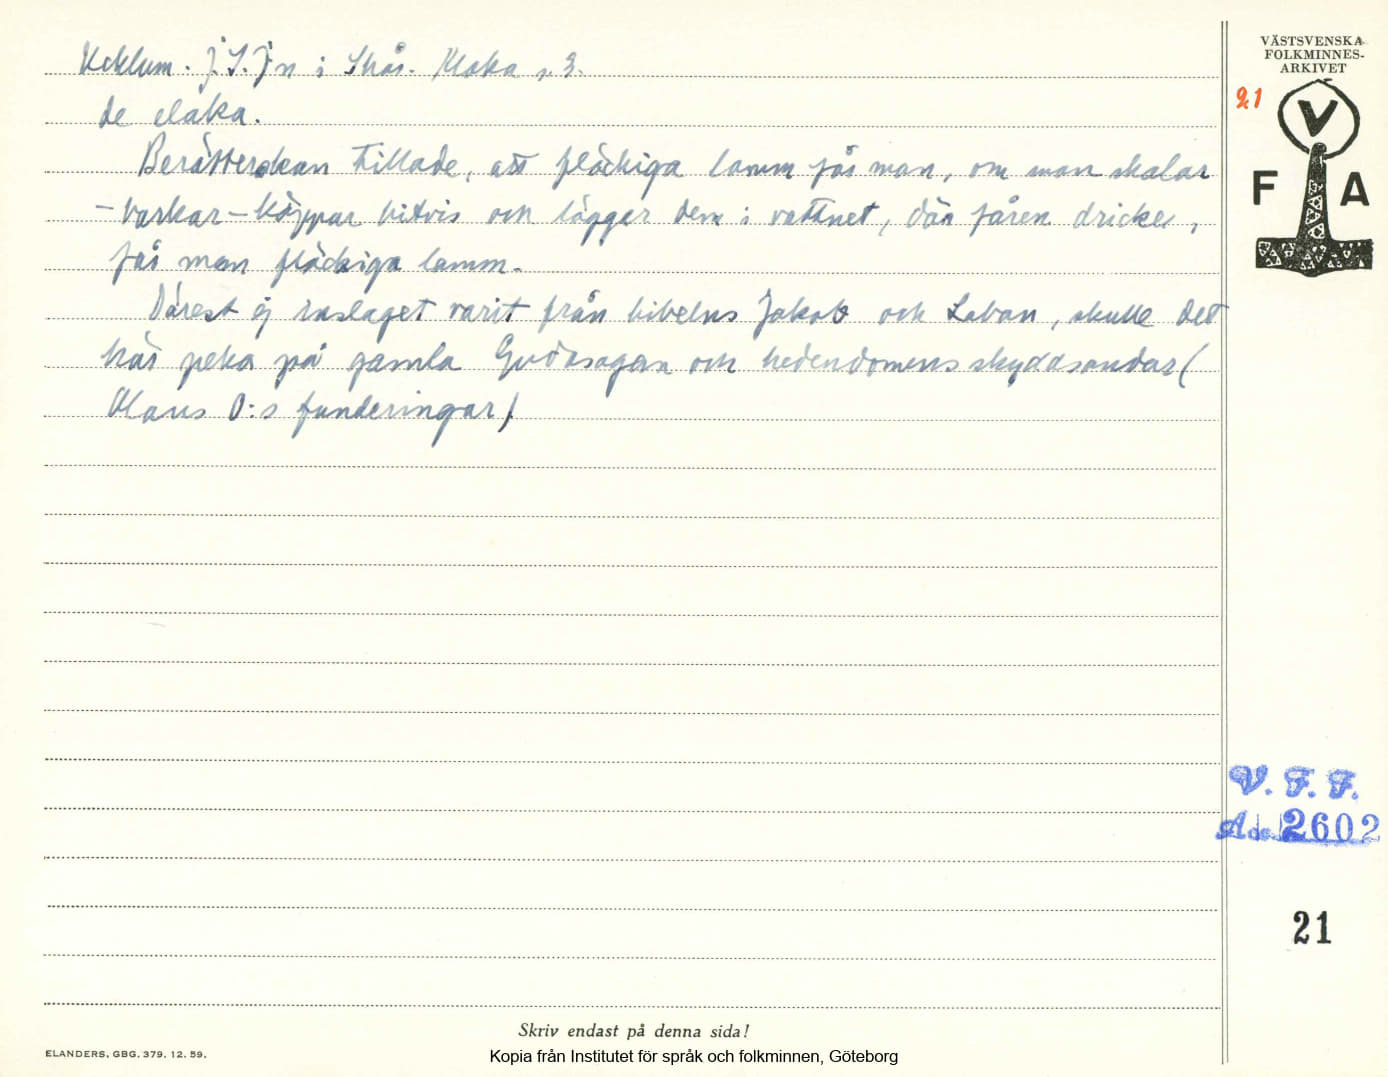 Ucklum. J.S.J-n i Skår. Kloka s. 3.
de elaka.
Berätterskan tillade, att fläckiga lamm fås man, om man skalar
– barkar – käppar bitvis och lägger dem i vattnet, där fåren dricker,
får man fläckiga lamm.
Därest ej inslaget varit från bibelns Jakob och Laban, skulle det
här peka på gamla Gudasagan och hedendomens skyddsandar (
Olaus O:s funderingar)
VÄSTSVENSKA
FOLKMINNES-
ARKIVET
21
V
F A
V. F. F.
Acc. 2602
21
Skriv endast på denna sida!
ELANDERS, GBG. 379. 12. 59.
Kopia från Institutet för språk och folkminnen, Göteborg